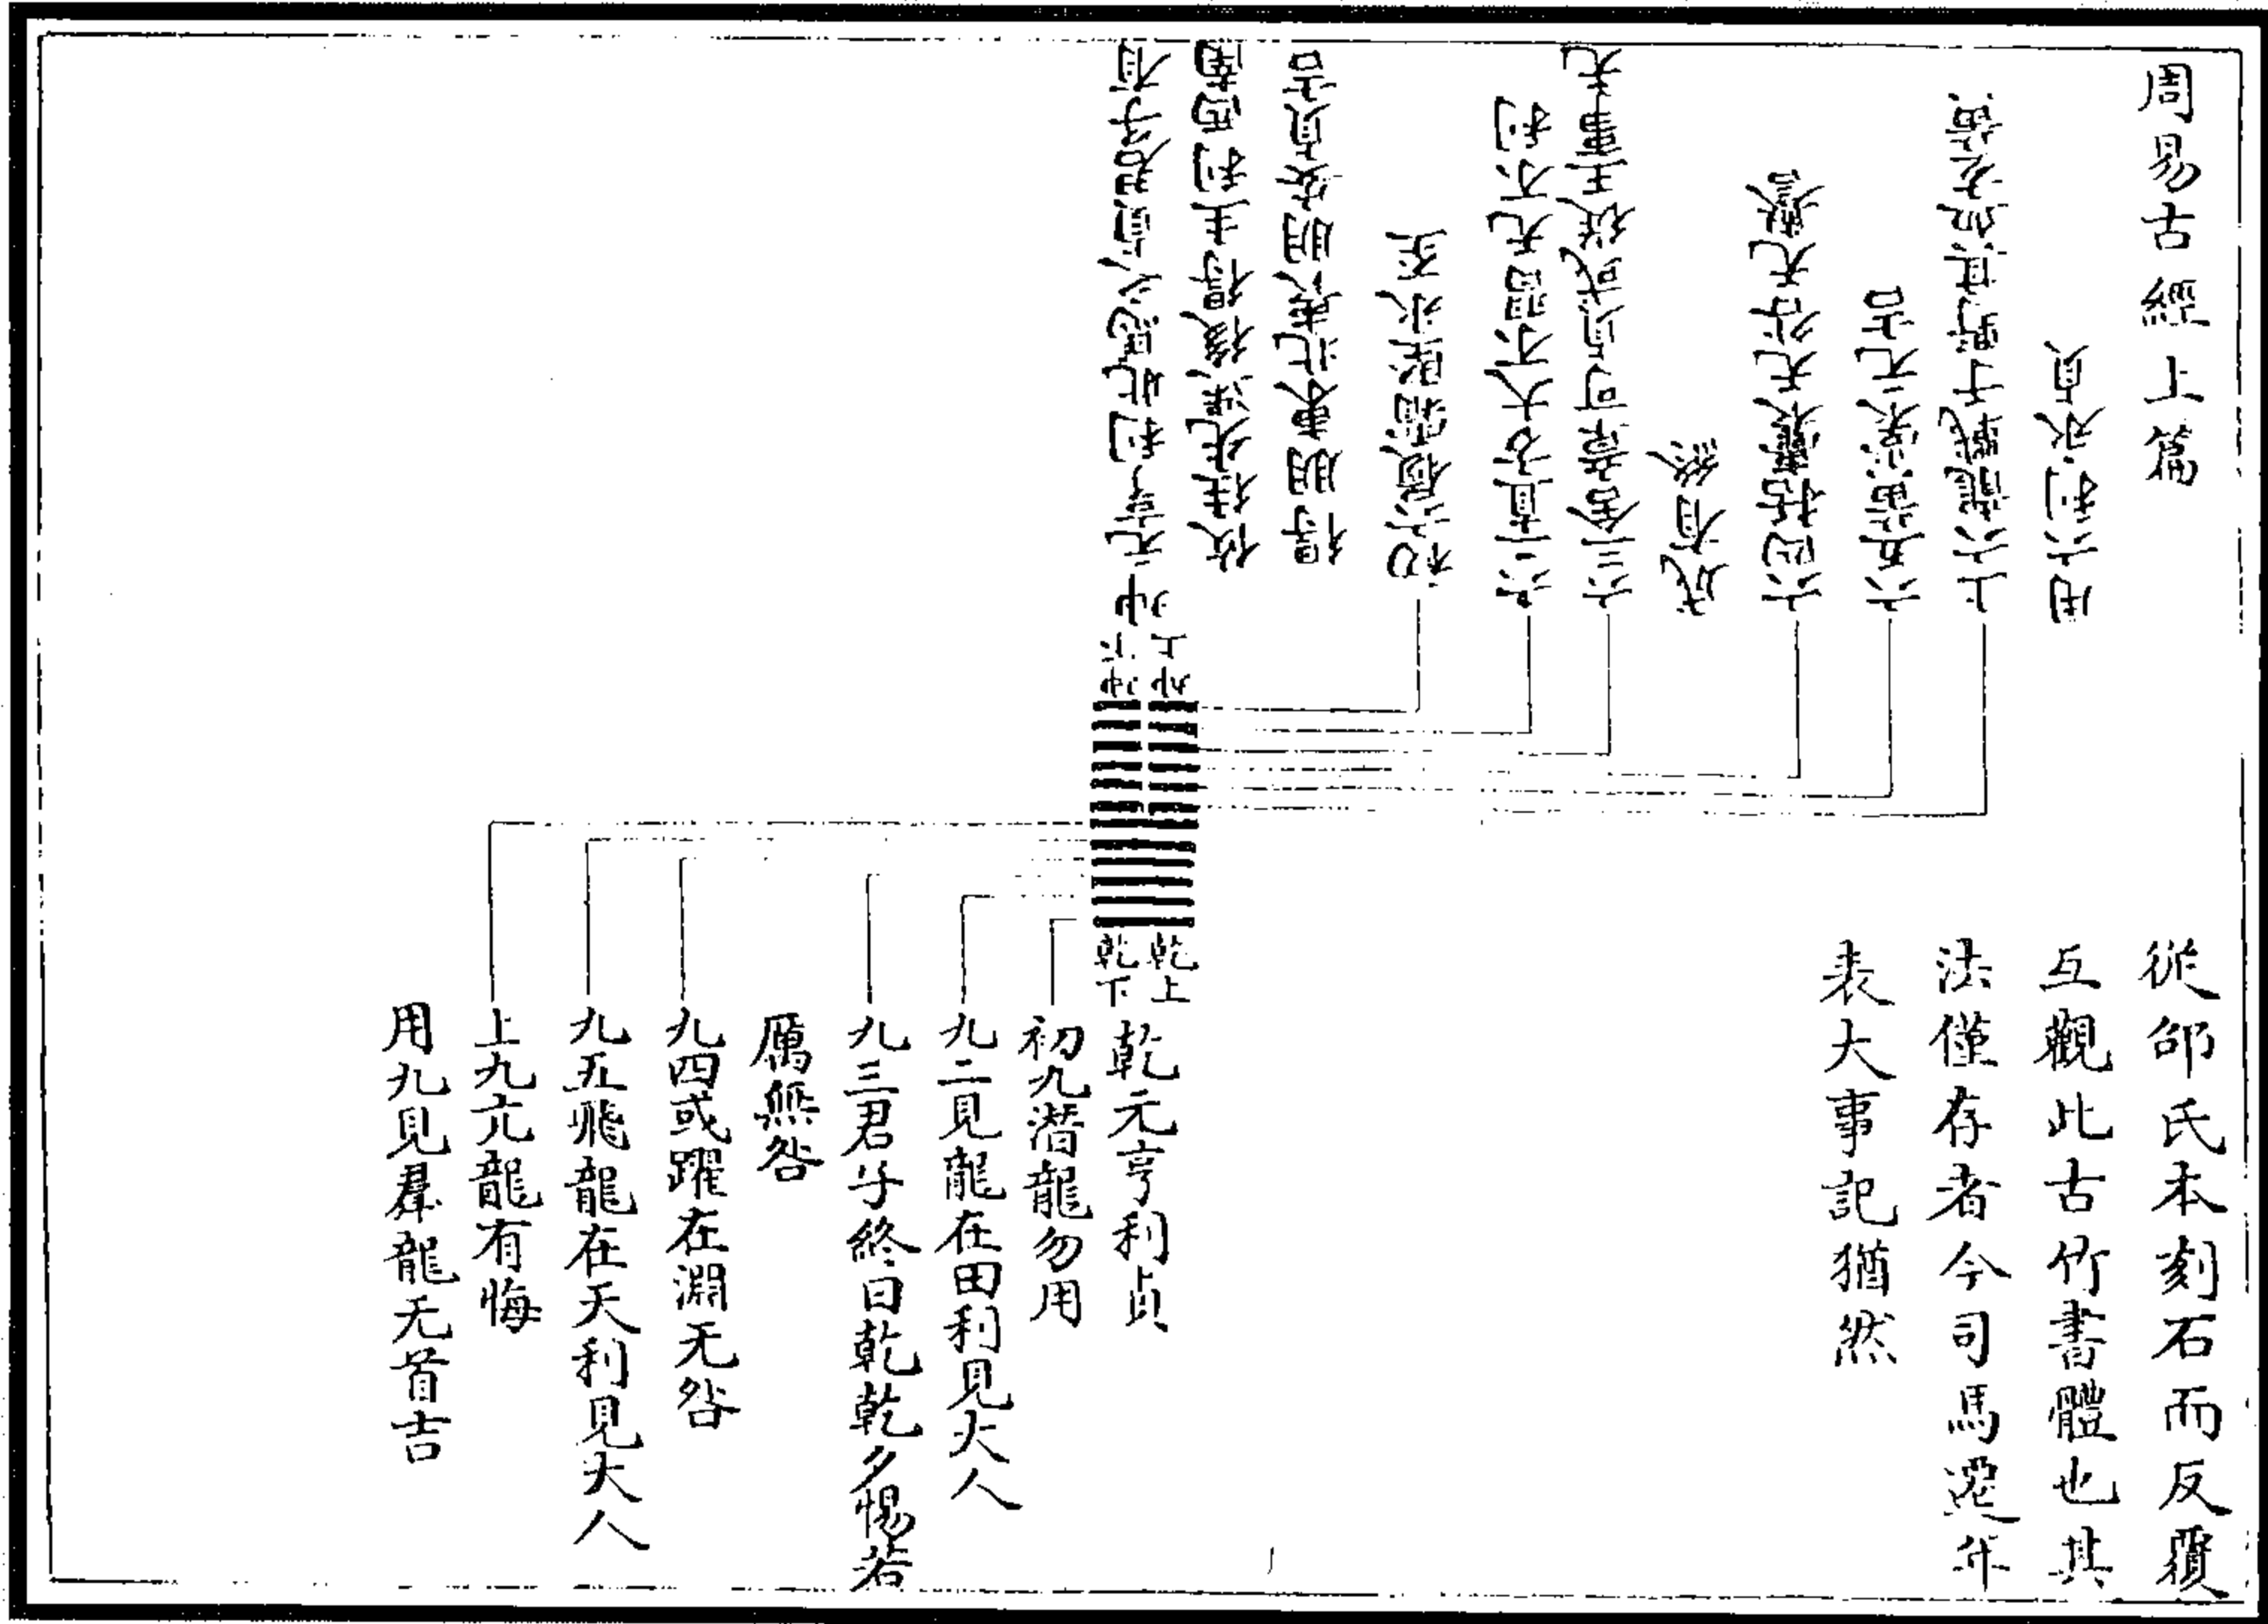 周易古經上篇
從邵氏本刻石而反覆
互觀此古竹書體也其
法僅存者今司馬遷年
表大事記猶然
乾上
乾下
乾元亨利貞
初九潛龍勿用
九二見龍在田利見大人
九三君子終日乾乾夕惕若
厲無咎
九四或躍在淵无咎
九五飛龍在天利見大人
上九亢龍有悔
用九見羣龍无首吉
坤上
坤下
坤元亨利牝馬之貞君子有
攸往先迷後得主利西南
得朋東北喪朋安貞吉
初六履霜堅冰至
六二直方大不習无不利
六三含章可貞或從王事无
成有終
六四括囊无咎无譽
六五黃裳元吉
上六龍戰于野其血玄黃
用六利永貞